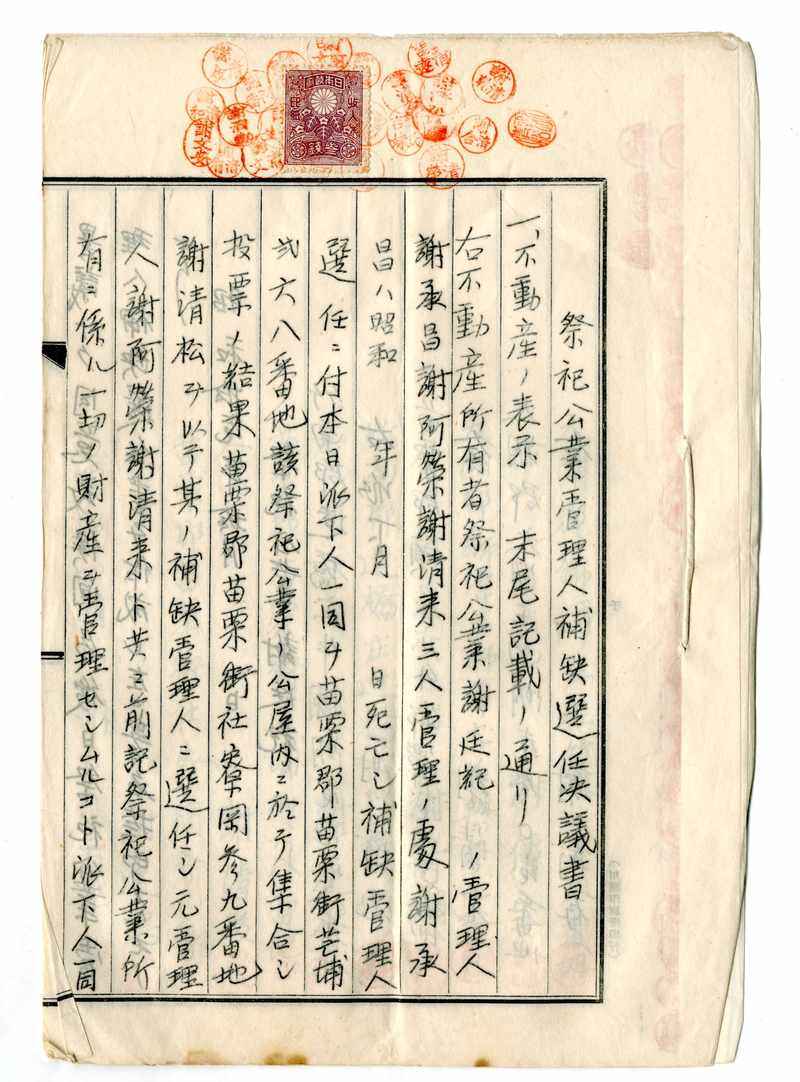 祭祀公業管理人補缺選任決議書
一、不動産ノ表示 末尾記載ノ通リ
右不動産所有者祭祀公業謝廷紀ノ管理人
謝承昌謝阿榮謝清来三人管理ノ處謝承
昌ハ昭和 年 月 日死亡シ補缺管理人
選任ニ付本日派下人一同ヲ苗栗郡苗栗街芒埔
弐六八番地該祭祀公業ノ公屋内ニ於テ集合シ
投票ノ結果苗栗郡苗栗街社寮岡参九番地
謝清松ヲ以テ其ノ補缺管理人ニ選任シ元管理
人謝阿榮謝清来ト共ニ前記祭祀公業所
有ニ係ル一切ノ財産ヲ管理セシムルコト派下人一同